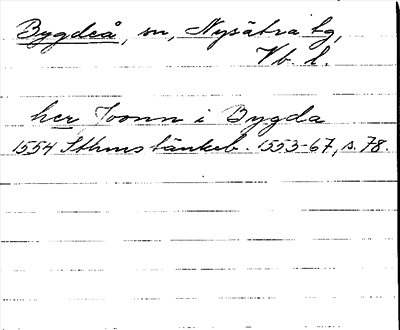 Bygdeå, sn, Nysätra tg,
Vb l.
her Joonn i Bygda
1554 Sthms tänkeb. 1553-67, s. 78.